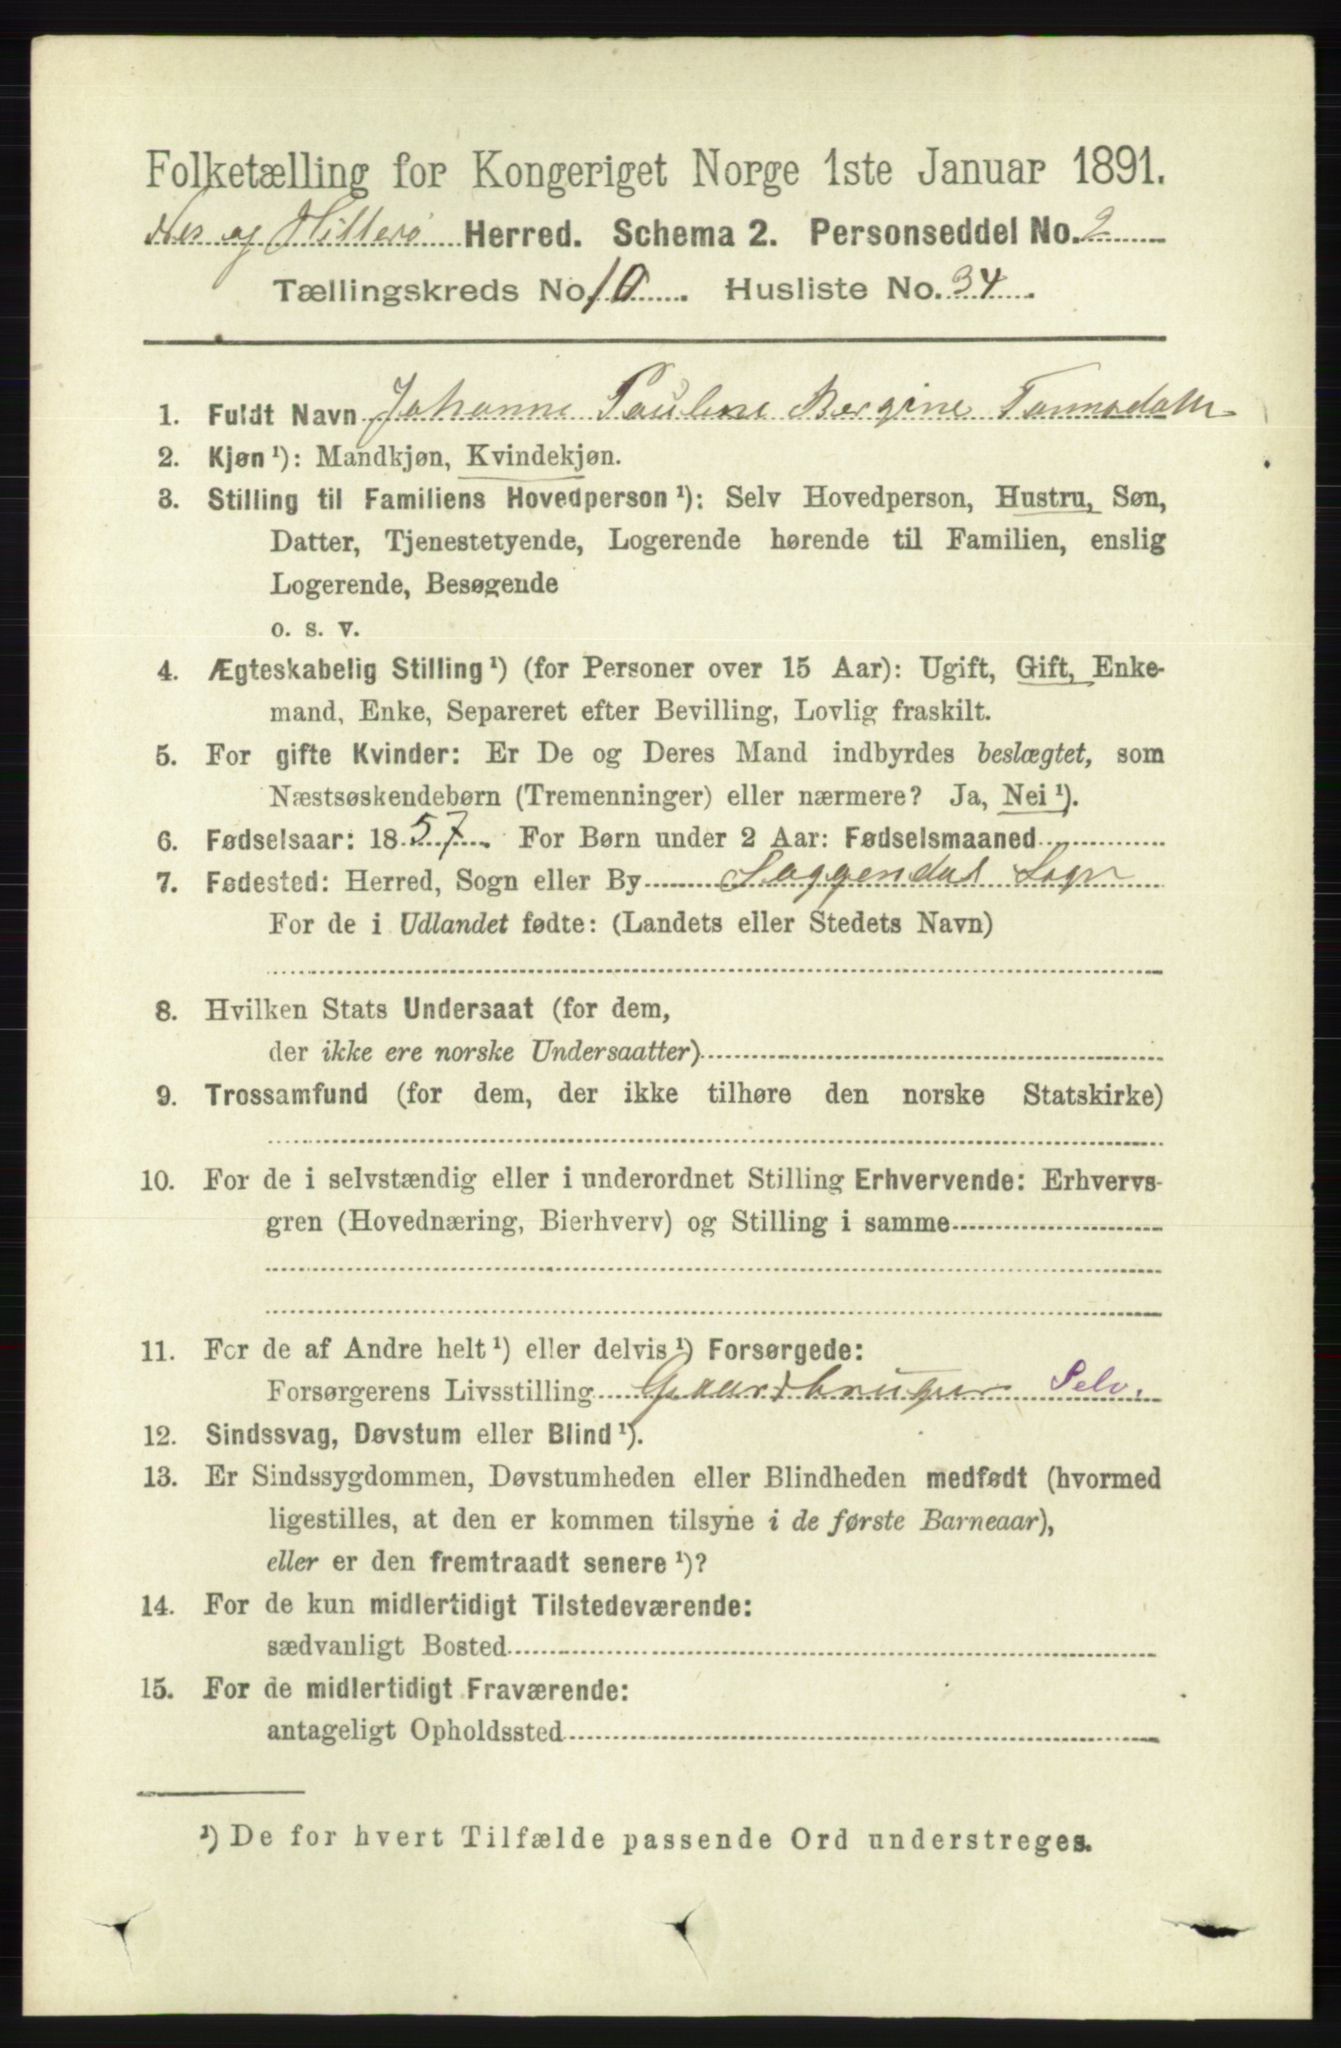 Folketælling for Kongeriget Norge 1ste Januar 1891.
Nes og Hitterø Herred. Schema 2. Personseddel No. 2
Tællingskreds No. 10. Husliste No. 34.
1. Fuldt Navn Johanne Pauline Bergine
2. Kjøn ¹): Mandkjøn, Kvindekjøn.
3. Stilling til Familiens Hovedperson ¹): Selv Hovedperson, Hustru, Søn,
Datter, Tjenestetyende, Logerende hørende til Familien, enslig
Logerende, Besøgende
o. s. v.
4. Ægteskabelig Stilling ¹) (for Personer over 15 Aar): Ugift, Gift, Enke-
mand, Enke, Separeret efter Bevilling, Lovlig fraskilt.
5. For gifte Kvinder: Er De og Deres Mand indbyrdes beslægtet, som
Næstsøskendebørn (Tremenninger) eller nærmere? Ja, Nei ¹).
6. Fødselsaar: 1857. For Børn under 2 Aar: Fødselsmaaned
7. Fødested: Herred, Sogn eller By Soggendal Sogn
For de i Udlandet fødte: (Landets eller Stedets Navn)
8. Hvilken Stats Undersaat (for dem,
der ikke ere norske Undersaatter)
9. Trossamfund (for dem, der ikke tilhøre den norske Statskirke)
10. For de i selvstændig eller i underordnet Stilling Erhvervende: Erhvervs-
gren (Hovednæring, Bierhverv) og Stilling i samme
11. For de af Andre helt ¹) eller delvis ¹) Forsørgede:
Forsørgerens Livsstilling Gaardbruger Selv.
12. Sindssvag, Døvstum eller Blind ¹).
13. Er Sindssygdommen, Døvstumheden eller Blindheden medfødt (hvormed
ligestilles, at den er kommen tilsyne i de første Barneaar),
eller er den fremtraadt senere ¹)?
14. For de kun midlertidigt Tilstedeværende:
sædvanligt Bosted
15. For de midlertidigt Fraværende:
antageligt Opholdssted
¹) De for hvert Tilfælde passende Ord understreges.